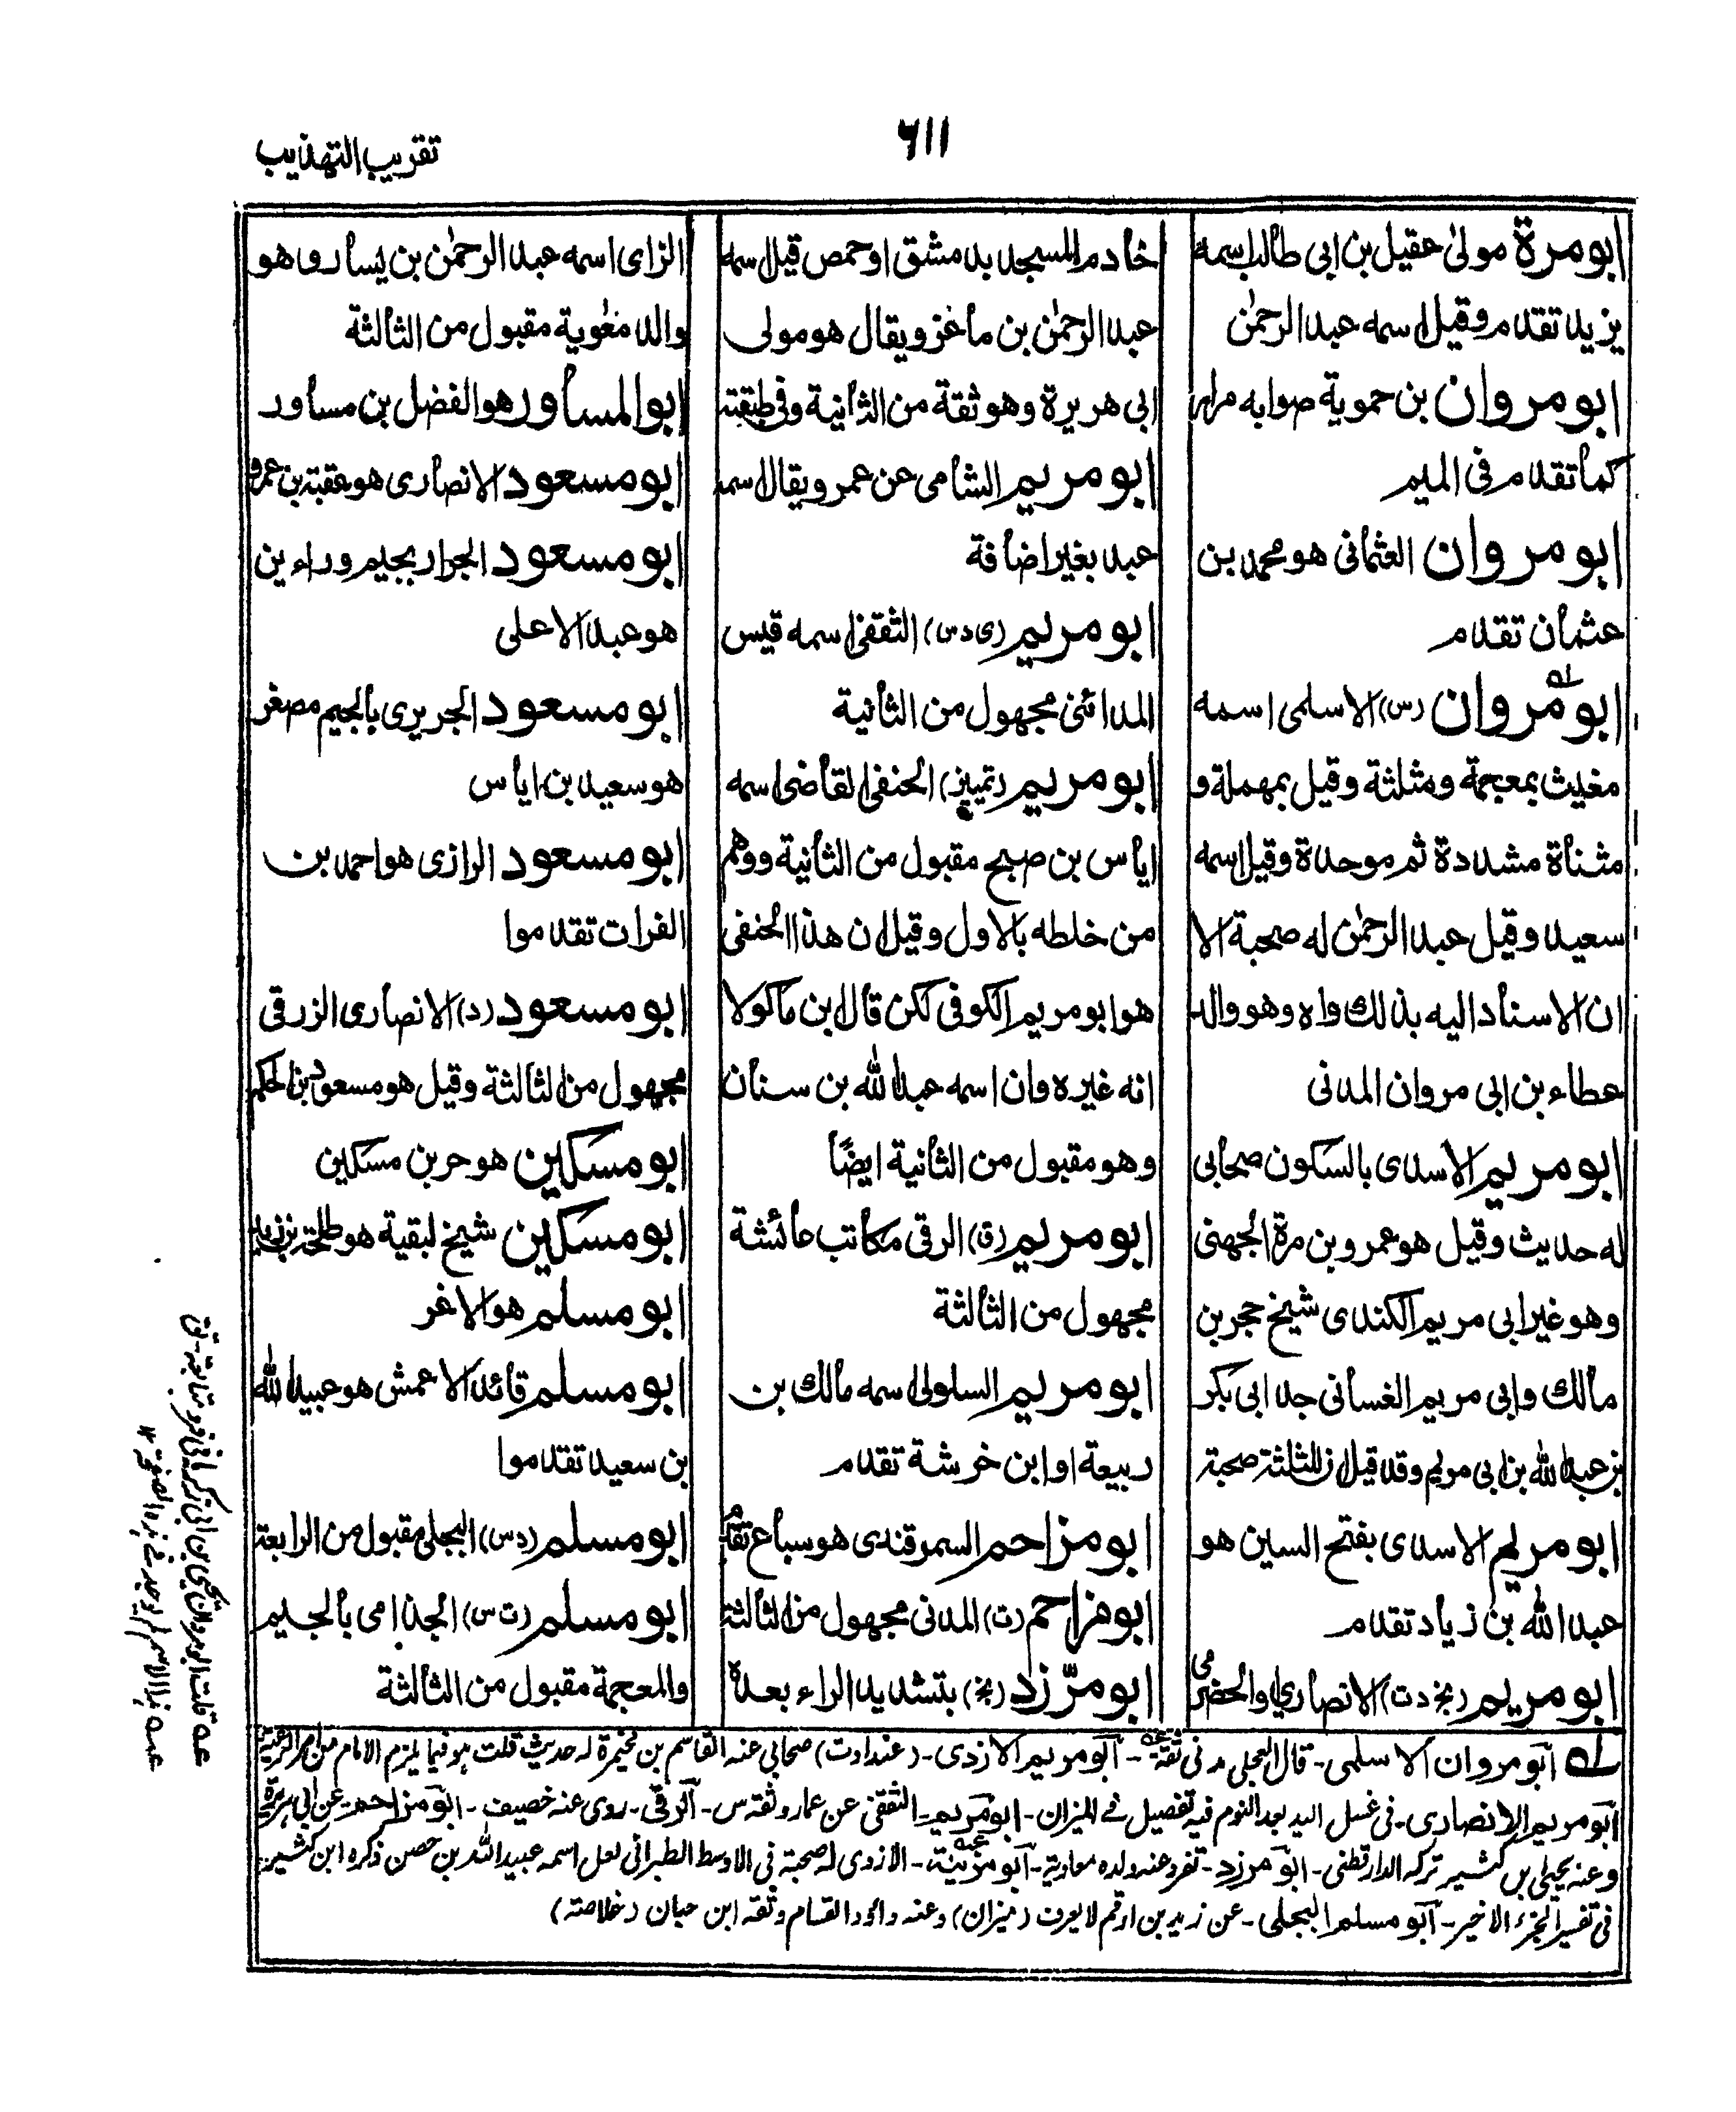 تقريب التهذيب
٦١١
ابو مرة مولىٰ عقيل بن ابى طالب اسمه
يزيد تقدم وقيل اسمه عبد الرحمٰن
ابو مروان بن حموية صوابه مرار
كما تقدم فى الميم
ابو مروان العثمانى هو محمد بن
عثمان تقدم
ابو مروان (س) الاسلمى اسمه
مغيث بمعجمة ومثلثة وقيل بمهملة و
مثناة مشددة ثم موحدة وقيل اسمه
سعيد وقيل عبد الرحمٰن له صحبة الا
ان الاسناد اليه بذلك واه وهو والد
عطاء بن ابى مروان المدنى
ابو مريم الاسدى بالسكون صحابى
له حديث وقيل هو عمرو بن مرة الجهنى
وهو غير ابى مريم الكندى شيخ حجر بن
مالك وابى مريم الغسانى جد ابى بكر
بن عبد الله بن ابى مريم وقد قيل ان للثلثة صحبة
ابو مريم الاسدى بفتح السين هو
عبد الله بن زياد تقدم
ابو مريم (بخ د ت) الانصارى او الحضرمى
خادم المسجد بدمشق او حمص قيل اسمه
عبد الرحمٰن بن ماعز ويقال هو مولى
ابى هريرة وهو ثقة من الثانية وفى طبقته
ابو مريم الشامى عن عمر ويقال اسمه
عبد بغير اضافة
ابو مريم (ى د س) الثقفى اسمه قيس
المدائنى مجهول من الثانية
ابو مريم (تمييز) الحنفى القاضى اسمه
اياس بن صبيح مقبول من الثانية ووهم
من خلطه بالاول وقيل ان هذا الحنفى
هو ابو مريم الكوفى لكن قال ابن ماكولا
انه غيره وان اسمه عبد الله بن سنان
وهو مقبول من الثانية ايضًا
ابو مريم (ق) الرقى مكاتب عائشة
مجهول من الثالثة
ابو مريم السلولى اسمه مالك بن
ربيعة او ابن خرشة تقدم
ابو مزاحم السمرقندى هو سباع تقدم
ابو مزاحم (ت) المدنى مجهول من الثالثة
ابو مزرد (بخ) بتشديد الراء بعده
الزاى اسمه عبد الرحمٰن بن يسار وهو
والد معٰوية مقبول من الثالثة
ابو المساور هو الفضل بن مساور
ابو مسعود الانصارى هو عقبة بن عمرو
ابو مسعود الجرار بجيم وراءين
هو عبد الاعلى
ابو مسعود الجريرى بالجيم مصغر
هو سعيد بن اياس
ابو مسعود الرازى هو احمد بن
الفرات تقدموا
ابو مسعود (د) الانصارى الزرقى
مجهول من الثالثة وقيل هو مسعود بن الحكم
ابو مسكين هو حر بن مسكين
ابو مسكين شيخ لبقية هو طلحة بن زيد
ابو مسلم هو الاغر
ابو مسلم قائد الاعمش هو عبيد الله
بن سعيد تقدموا
ابو مسلم (د س) البجلى مقبول من الرابعة
ابو مسلم (ت س) الجذامى بالجيم
والمعجمة مقبول من الثالثة
له ابو مروان الاسلمى - قال العجلى مدنى ثقة - ابو مريم الازدى - (عند ا د ت) صحابى عنه القاسم بن مخيمرة له حديث قلت هو فيما يلزم الامام من امر الرعية
ابو مريم الانصارى - فى غسل اليد بعد النوم فيه تفصيل فى الميزان - ابو مريم - الثقفى عن عمار وثقه س - الرقى - روى عنه خصيف - ابو مزاحم - عن ابى هريرة
وعنه يحيى بن كثير تركه الدارقطنى - ابو مزرد - تفرد عنه ولده معاوية - ابو مزينة - الازدى له صحبة فى الاوسط الطبرانى لعل اسمه عبيد الله بن حصن ذكره ابن كثير
فى تفسير الجزء الاخير - ابو مسلم البجلى - عن زيد بن ارقم لا يعرف (ميزان) وعنه داؤد القسام وثقه ابن حبان (خلاصة)